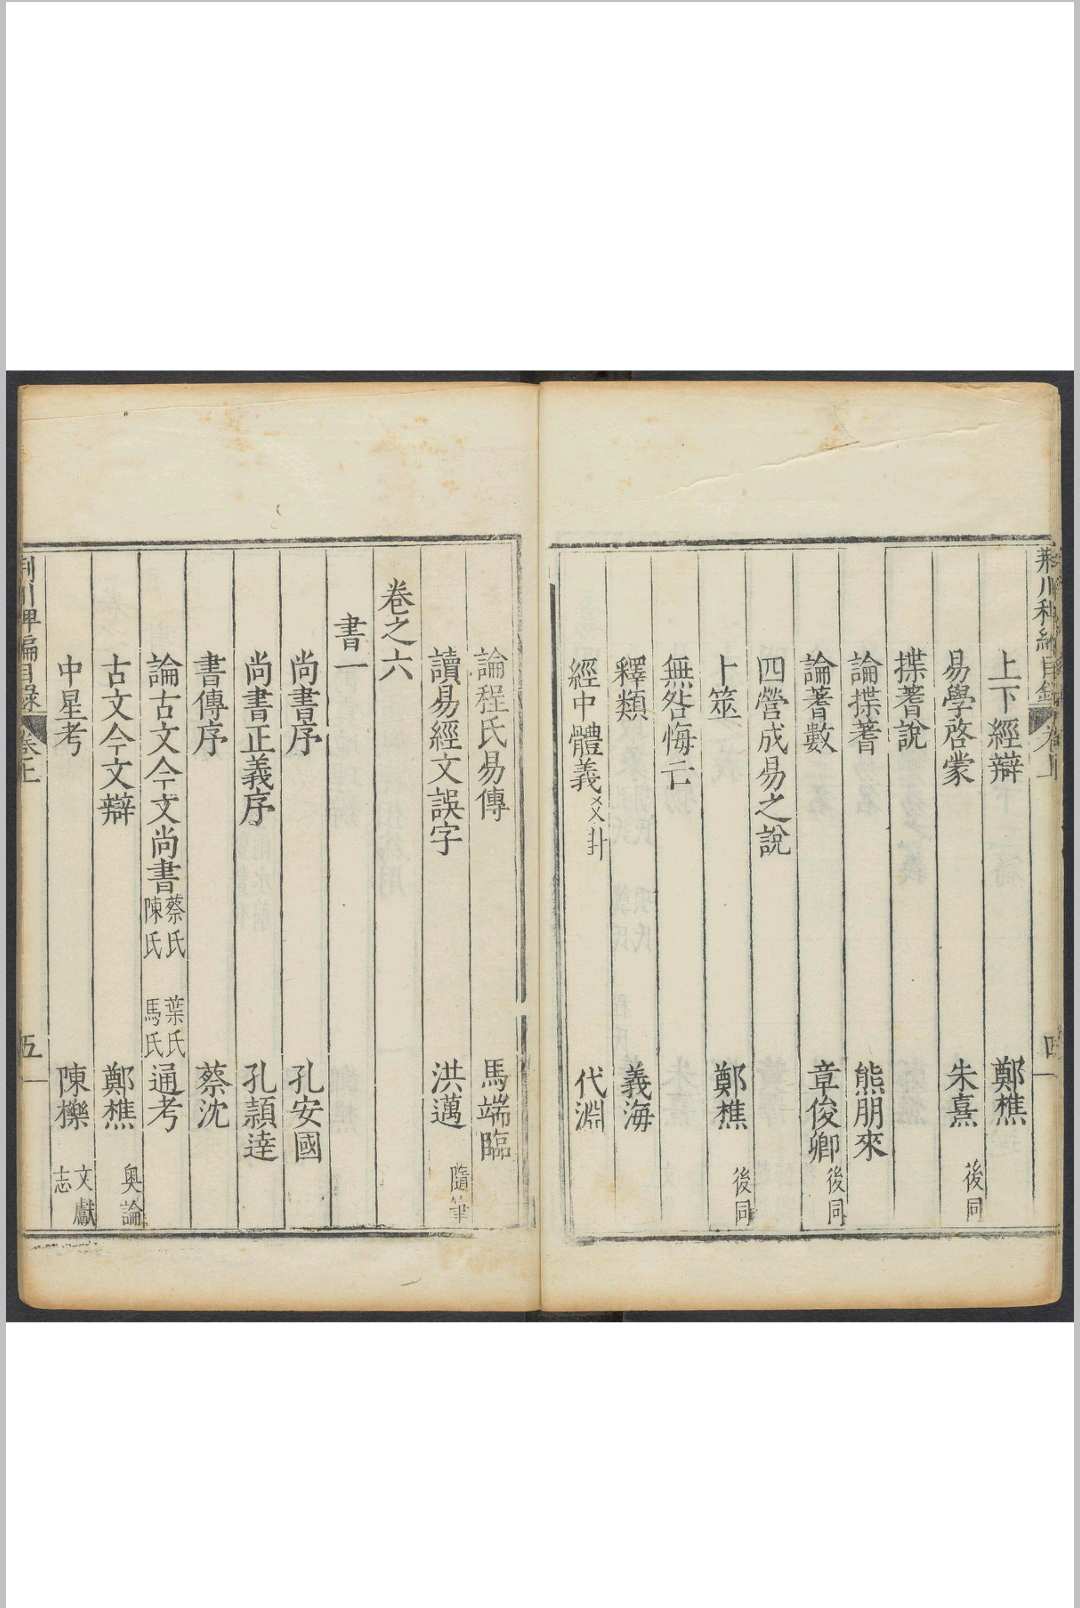 荆川稗編目錄 卷上 四
上下經辯 鄭樵
易學啓蒙 朱熹 後同
揲蓍說
論揲蓍 熊朋來
論蓍數 章俊卿 後同
四營成易之說
卜筮 鄭樵 後同
無咎悔亡
釋類 義海
經中體義 爻卦 代淵
論程氏易傳 馬端臨
讀易經文誤字 洪邁 隨筆
卷之六
書一
尚書序 孔安國
尚書正義序 孔頴達
書傳序 蔡沈
論古文今文尚書 蔡氏 陳氏 葉氏 馬氏 通考
古文今文辯 鄭樵 奥論
中星考 陳櫟 文獻志
荆川稗編目錄 卷上 五